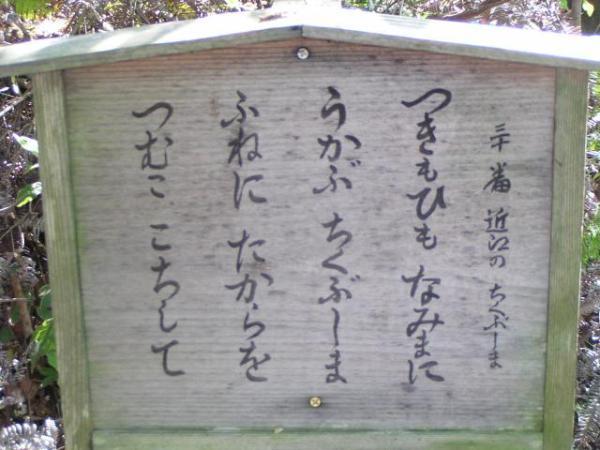 三十番 近江の ちくぶしま
つきもひも なみまに
うかぶ ちくぶしま
ふねに たからを
つむこ こちして